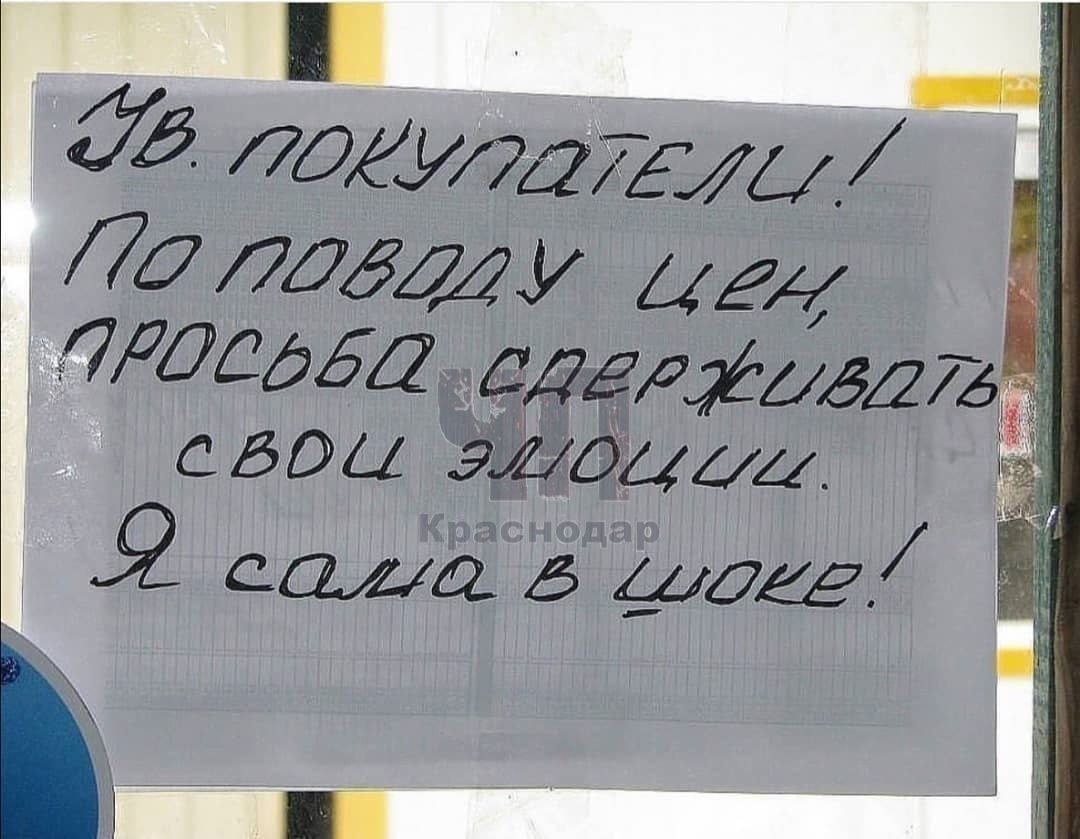 Ув. покупатели!
По поводу цен,
просьба сдерживать
свои эмоции.
Я сама в шоке!
ЧП
Краснодар